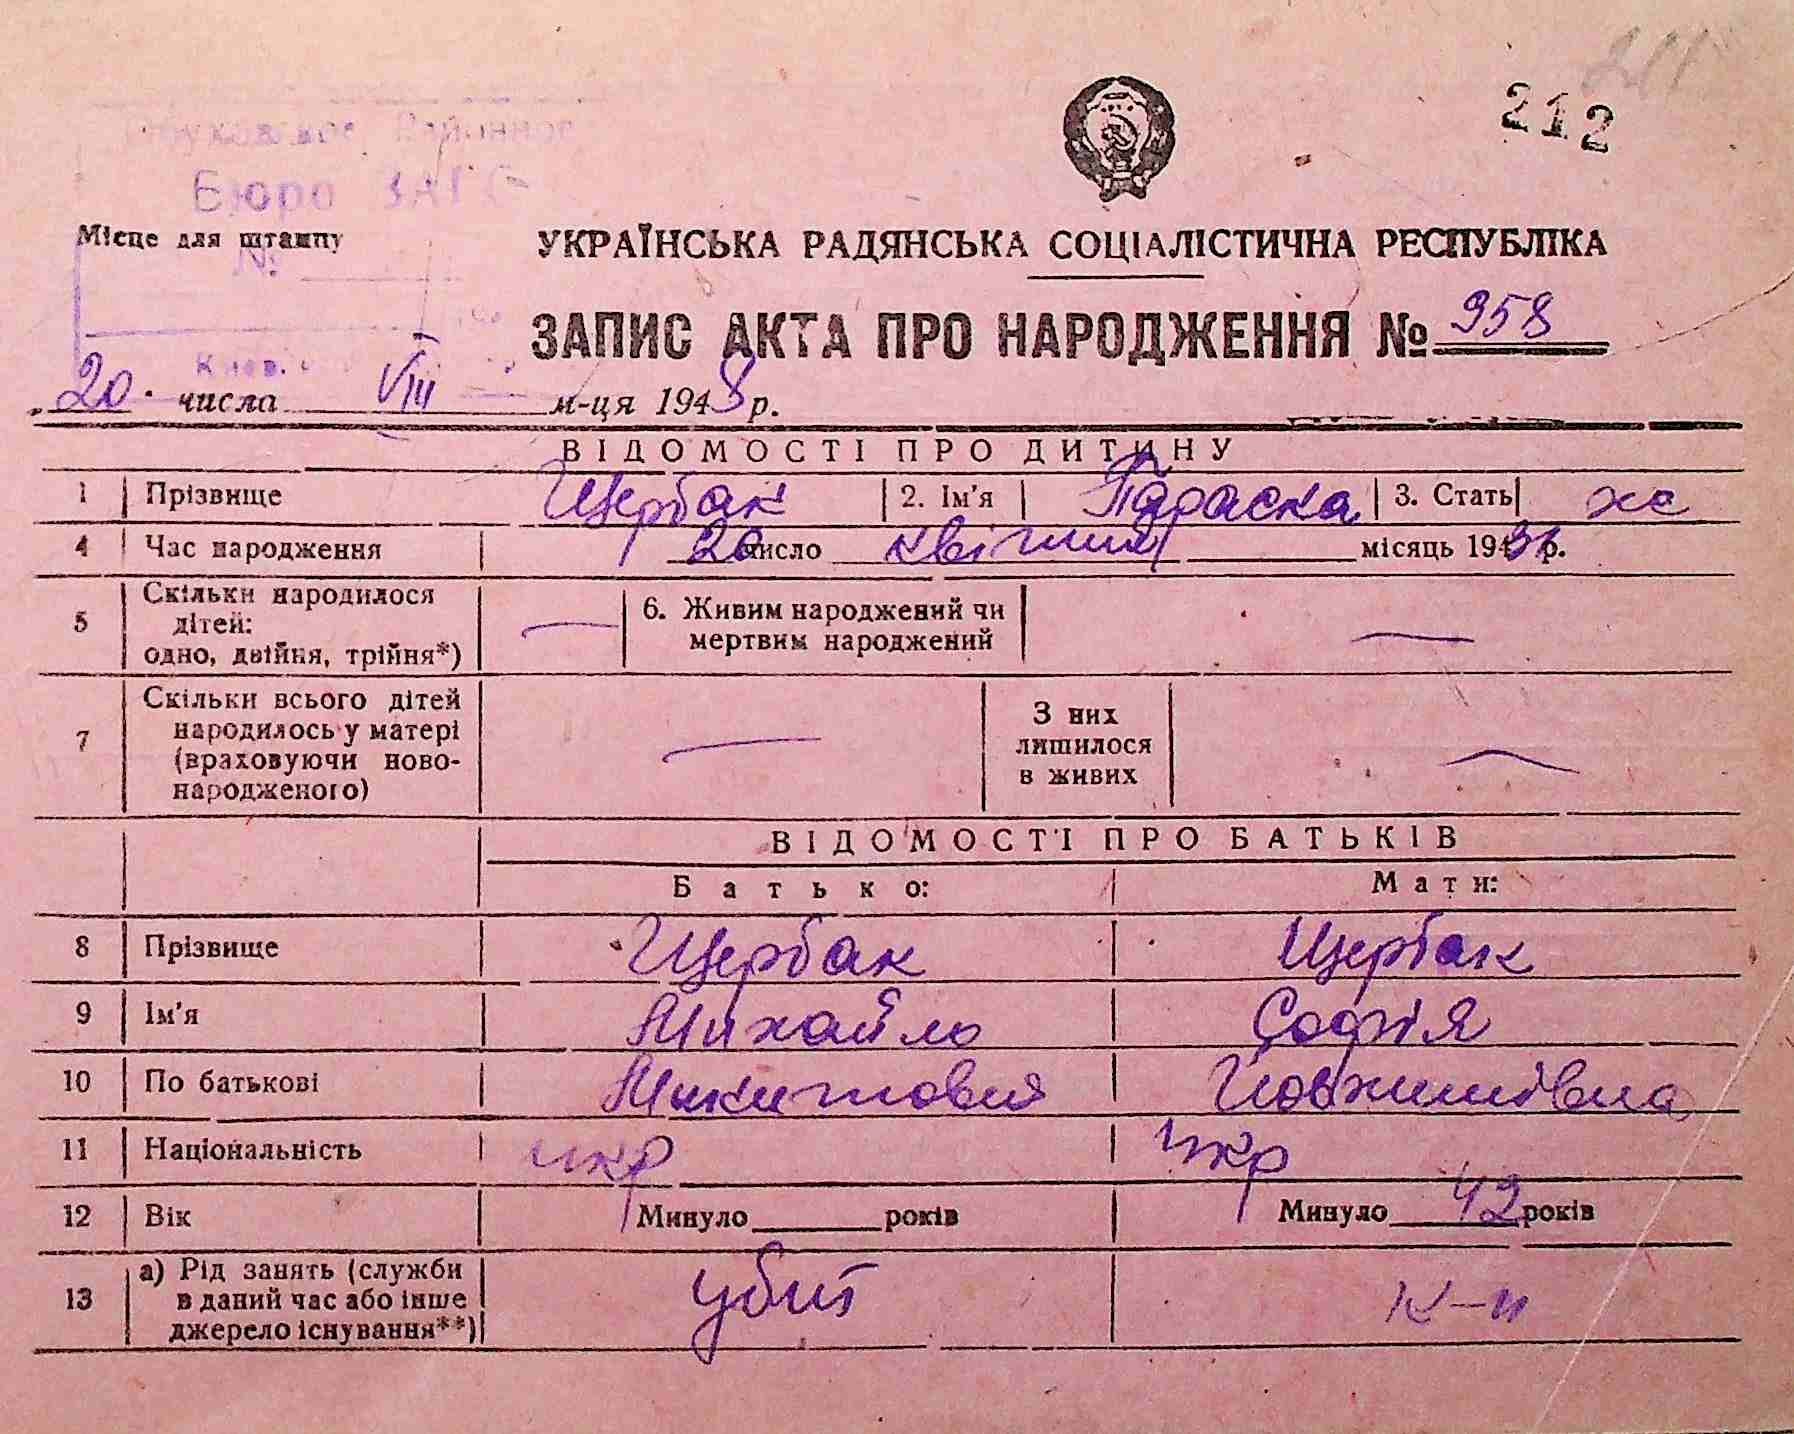 212
Районное
Бюро ЗАГС
Місце для штампу
№
Киев.
УКРАЇНСЬКА РАДЯНСЬКА СОЦІАЛІСТИЧНА РЕСПУБЛІКА
ЗАПИС АКТА ПРО НАРОДЖЕННЯ № 958
„20" числа VIII м-ця 1948 р.
ВІДОМОСТІ ПРО ДИТИНУ
1 Прізвище Щербак 2. Ім'я Параска 3. Стать ж
4 Час народження 20 число квітня місяць 1931 р.
5 Скільки народилося дітей: одно, двійня, трійня*) — 6. Живим народжений чи мертвим народжений —
7 Скільки всього дітей народилось у матері (враховуючи ново-народженого) — З них лишилося в живих —
ВІДОМОСТІ ПРО БАТЬКІВ
Батько: Мати:
8 Прізвище Щербак Щербак
9 Ім'я Михайло Софія
10 По батькові Микитович Йовхимівна
11 Національність укр укр
12 Вік Минуло років Минуло 42 років
13 а) Рід занять (служби в даний час або інше джерело існування**) убит к-ц